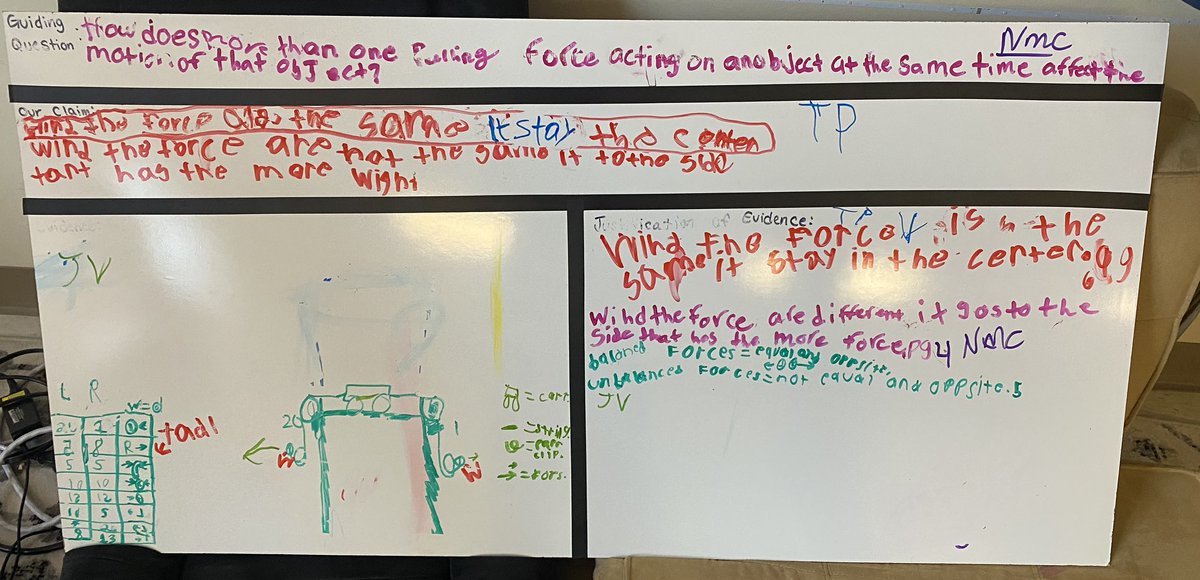 Guiding Question:
How does more than one Pulling force acting on an object at the same time affect the
motion of that object?
NMC
Our Claim:
the force are the same it stay the centen
Wind the force are not the same it to the side
tant has the more wight
TP
Evidence:
JV
L R W=d
1
8 R→
5 5
10 10
12 12
11 5
tadl
20
1
W
W
= carr.
= string
= paper clip.
= fors.
Justification of Evidence:
TP
Wind the force is the
same it stay in the center.
Wihd the force are different it gos to the
side that has the more force, pg 4 NMC
balaned Forces = equal and opposite.
unbalanced Forces = not equal and oppsite. 5
JV